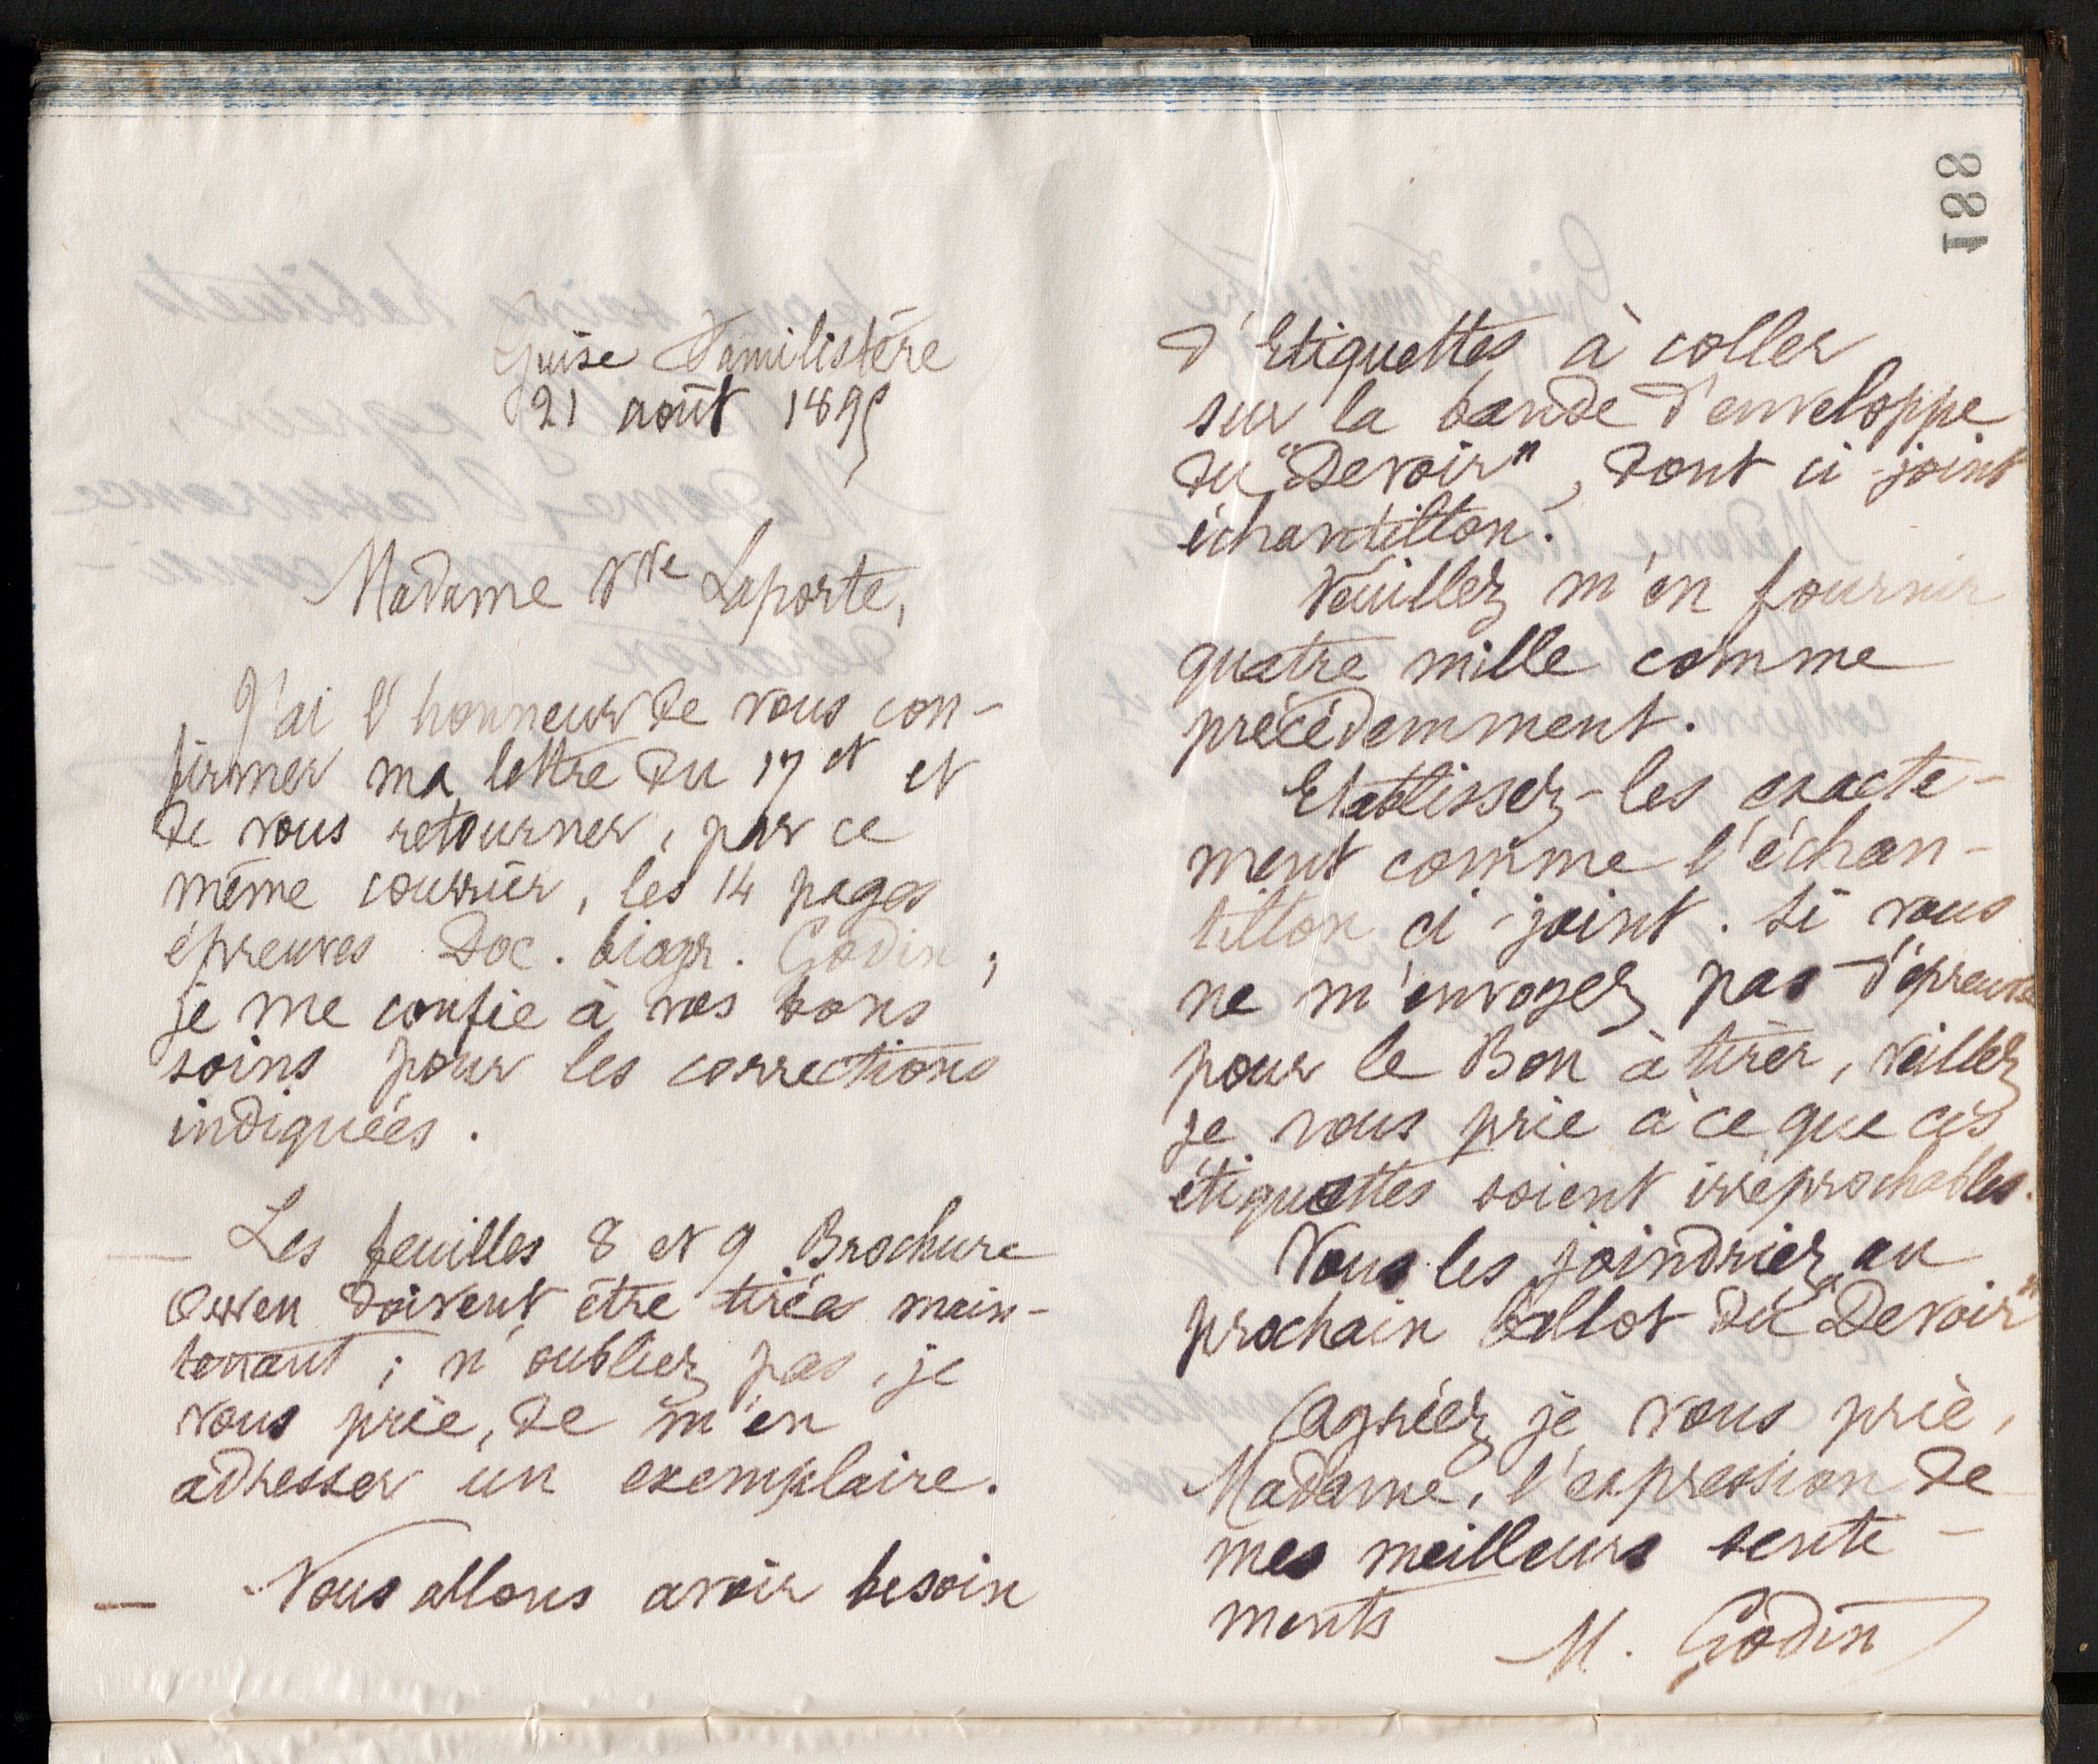 188
Guise Familistère
21 août 1895
Madame Vve Laporte,
J'ai l'honneur de vous con-
firmer ma lettre du 17 ct et
de vous retourner, par ce
même courrier, les 14 pages
épreuves Doc. biogr. Godin ;
je me confie à vos bons
soins pour les corrections
indiquées.
— Les feuilles 8 et 9 Brochure
Owen doivent être tirées main-
tenant ; n'oubliez pas, je
vous prie, de m'en
adresser un exemplaire.
— Nous allons avoir besoin
d'Etiquettes à coller
sur la bande d'enveloppe
du "Devoir", dont ci-joint
échantillon.
Veuillez m'en fournir
quatre mille comme
précédemment.
Etablissez-les exacte-
ment comme l'échan-
tillon ci-joint. Si vous
ne m'envoyez pas d'épreuve
pour le Bon à tirer, veillez
je vous prie à ce que ces
étiquettes soient irréprochables.
Vous les joindriez au
prochain ballot du "Devoir"
Agréez je vous prie,
Madame, l'expression de
mes meilleurs senti-
ments
M. Godin